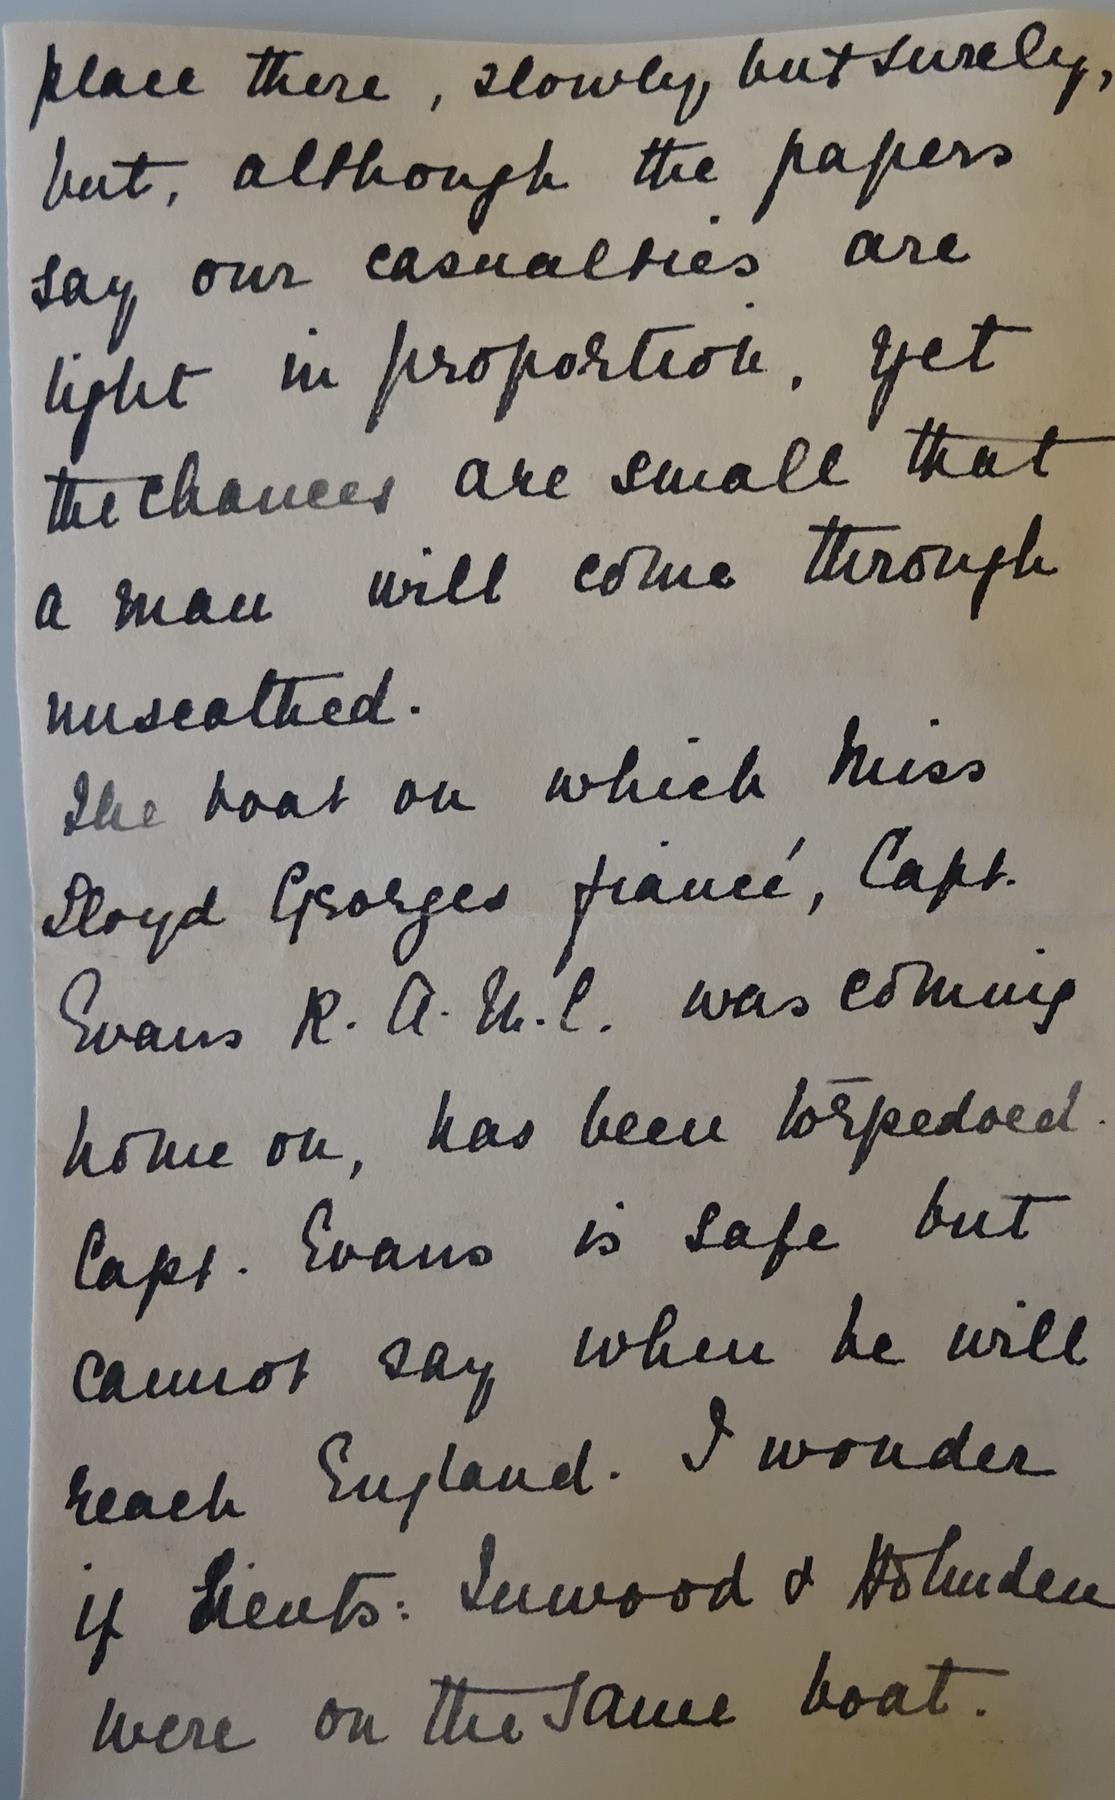 place there, slowly, but surely,
but, although the papers
say our casualties are
light in proportion, yet
the chances are small that
a man will come through
unscathed.
The boat on which Miss
Lloyd Georges fiancé, Capt.
Evans R.A.M.C. was coming
home on, has been torpedoed.
Capt. Evans is safe but
cannot say when he will
reach England. I wonder
if Lieuts: Inwood & Holmden
were on the same boat.